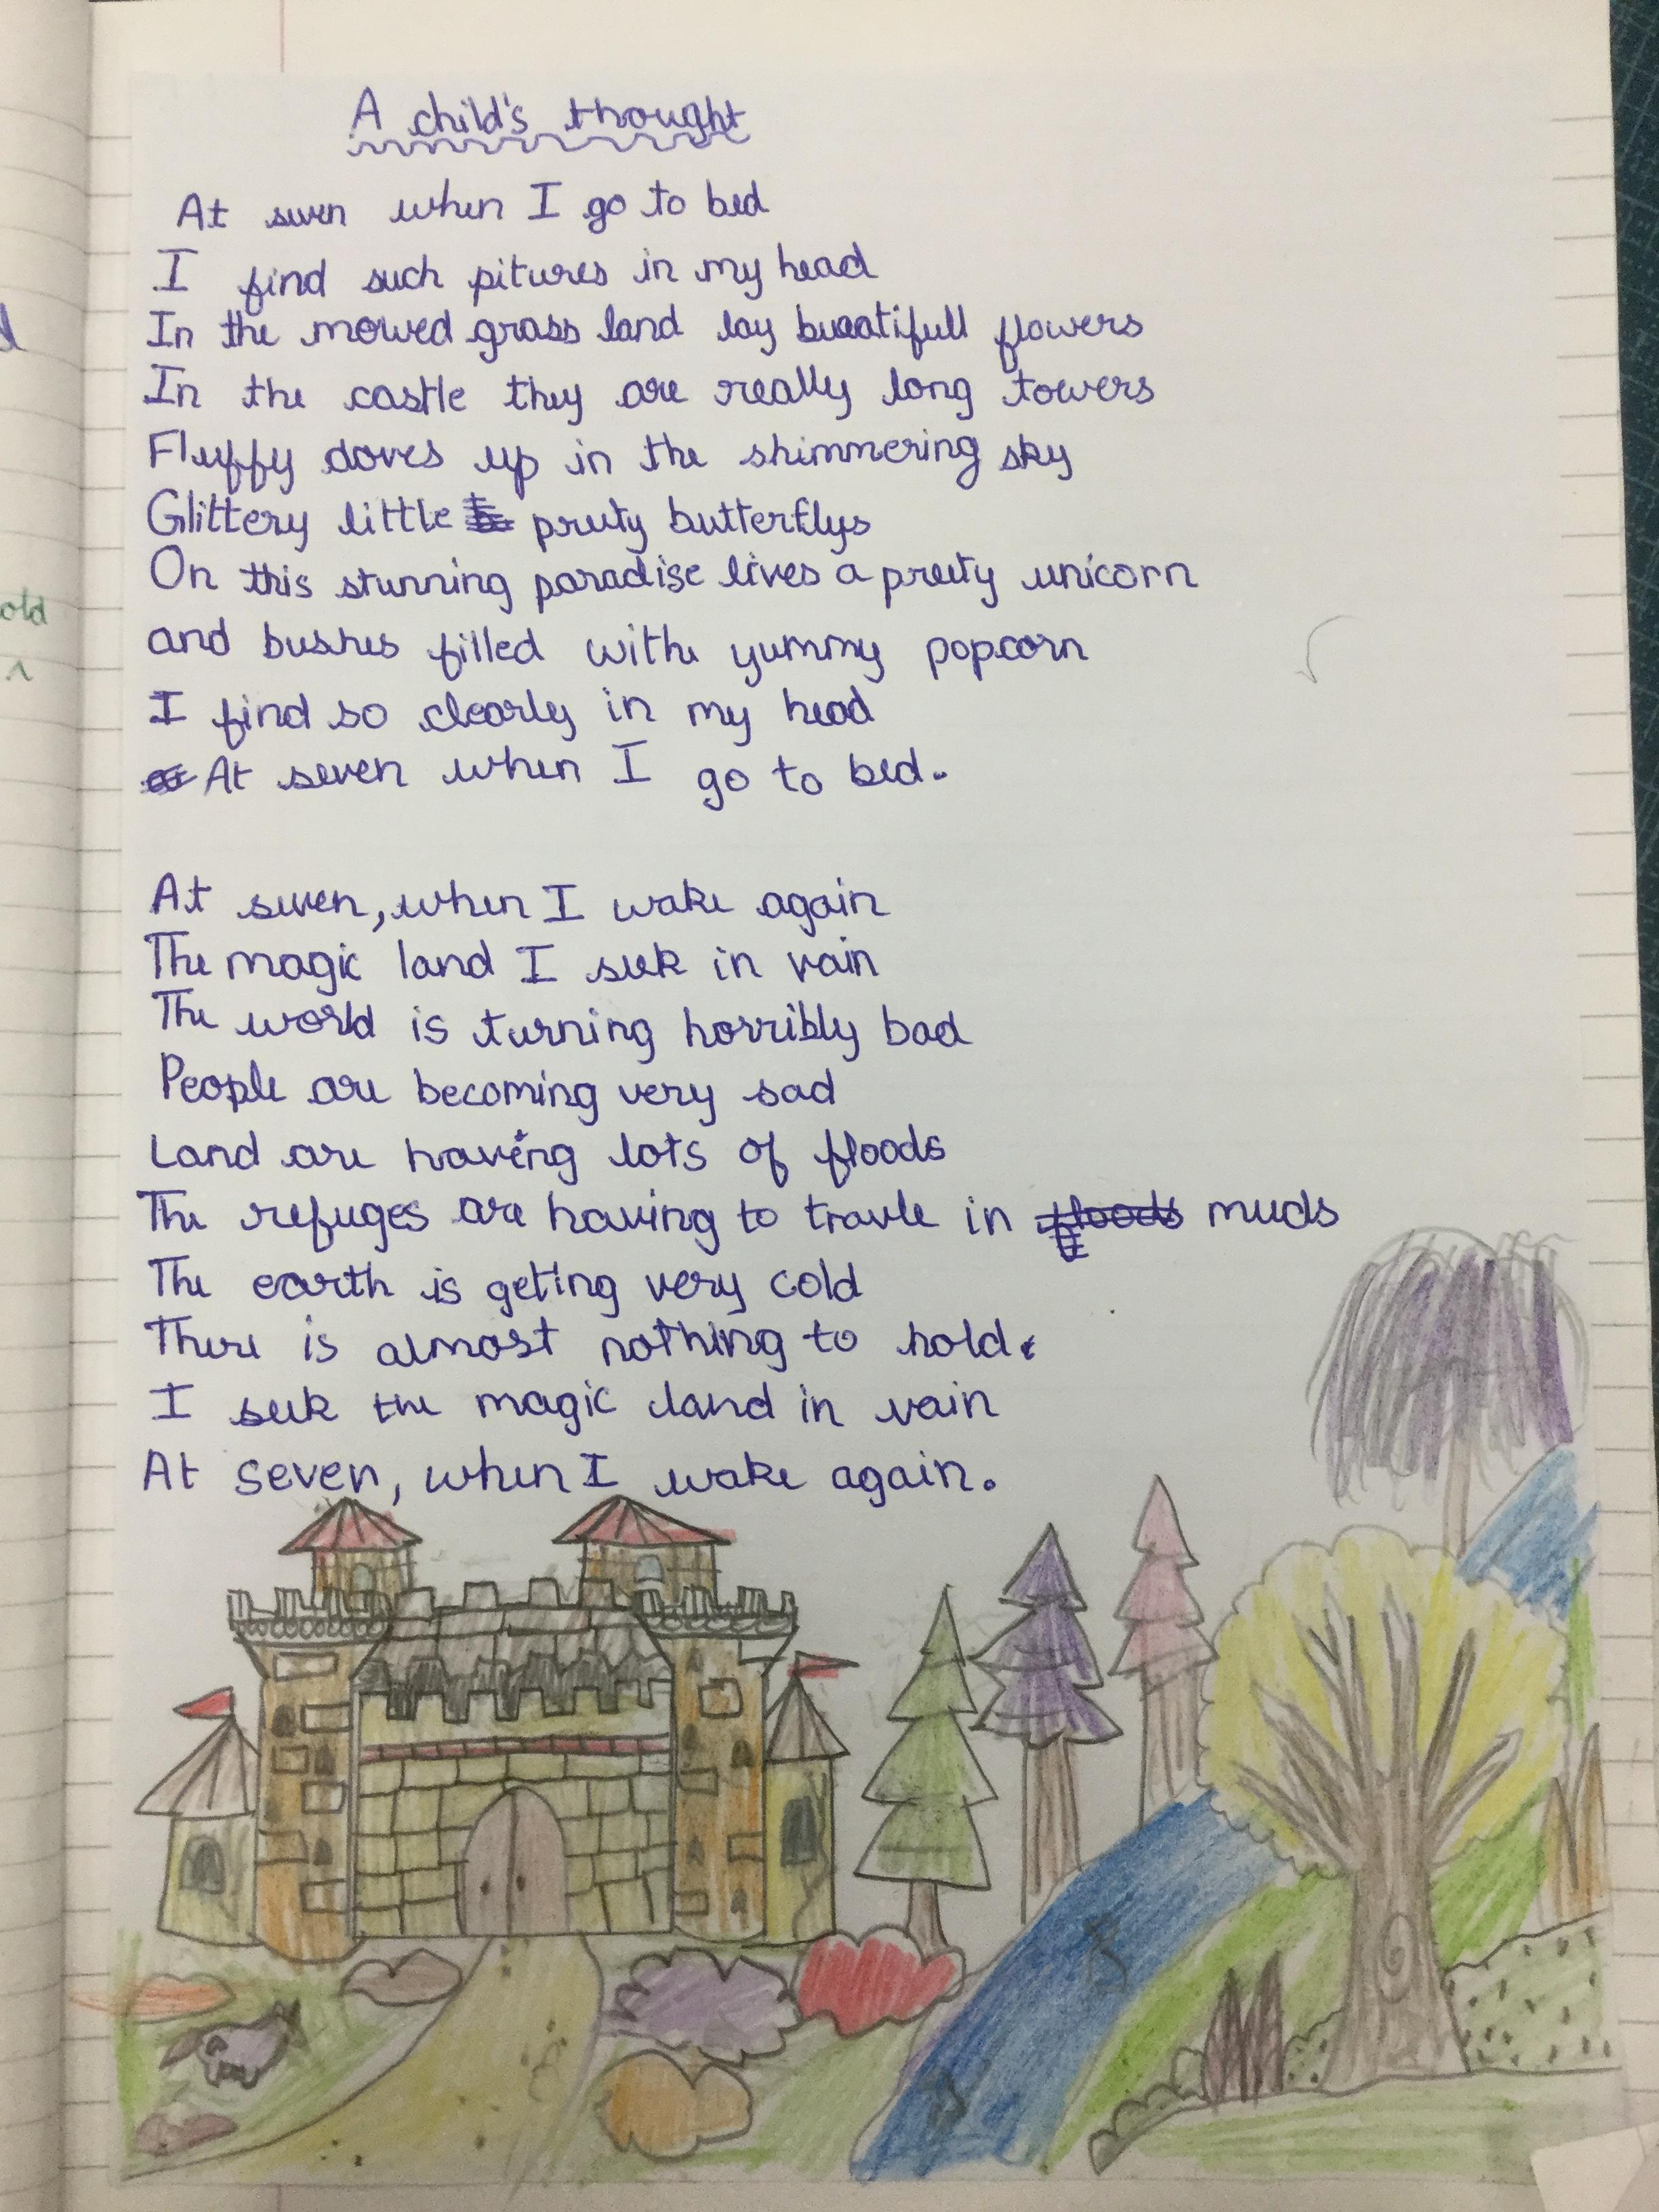 A child's thought
At seven when I go to bed
I find such pitures in my head
In the mowed grass land lay beaatifull flowers
In the castle they are really long towers
Fluffy doves up in the shimmering sky
Glittery little pretty butterflys
On this stunning paradise lives a pretty unicorn
and bushes filled withe yummy popcorn
I find so clearly in my head
At seven when I go to bed.
At seven, when I wake again
The magic land I seek in vain
The world is turning horribly bad
People are becoming very sad
Land are having lots of floods
old
The refuges are having to travle in floods muds
The earth is geting very cold
There is almost nothing to hold.
I seek the magic land in vain
At seven, when I wake again.